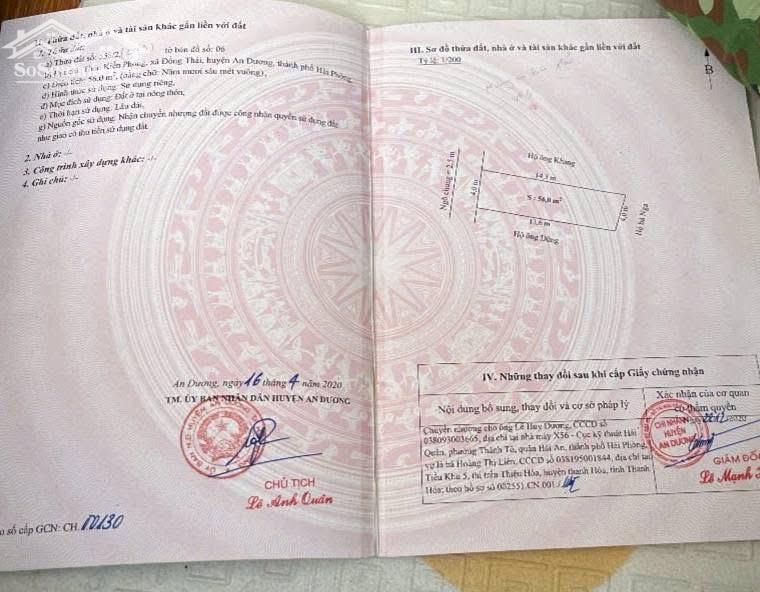 1. Thửa đất, nhà ở và tài sản khác gắn liền với đất
1. Thửa đất:
a) Thửa đất số: tờ bản đồ số: 06
Kiến Phong, xã Đồng Thái, huyện An Dương, thành phố Hải Phòng
c) Diện tích: 56,0 m², (bằng chữ: Năm mươi sáu mét vuông),
d) Hình thức sử dụng: Sử dụng riêng,
đ) Mục đích sử dụng: Đất ở tại nông thôn,
e) Thời hạn sử dụng: Lâu dài,
g) Nguồn gốc sử dụng: Nhận chuyển nhượng đất được công nhận quyền sử dụng đất
như giao có thu tiền sử dụng đất.
2. Nhà ở: -/-
3. Công trình xây dựng khác: -/-
4. Ghi chú: -/-
An Dương, ngày 16 tháng 4 năm 2020
TM. ỦY BAN NHÂN DÂN HUYỆN AN DƯƠNG
CHỦ TỊCH
Lê Anh Quân
số cấp GCN: CH.
III. Sơ đồ thửa đất, nhà ở và tài sản khác gắn liền với đất
Tỷ lệ: 1/200
B
Hộ ông Khang
14,3 m
Ngõ chung = 2,5 m
4,0 m
S : 56,0 m²
4,0 m
Hộ bà Nga
13,6 m
Hộ ông Dũng
IV. Những thay đổi sau khi cấp Giấy chứng nhận
Nội dung bổ sung, thay đổi và cơ sở pháp lý
Xác nhận của cơ quan
có thẩm quyền
Chuyển nhượng cho ông Lê Huy Dương, CCCD số
038093003665, địa chỉ tại nhà máy X56 - Cục kỹ thuật Hải
Quân, phường Thành Tô, quận Hải An, thành phố Hải Phòng,
vợ là bà Hoàng Thị Liên, CCCD số 038195001844, địa chỉ tại
Tiểu Khu 5, thị trấn Thiệu Hóa, huyện thanh Hóa, tỉnh Thanh
Hóa; theo hồ sơ số 002551.CN.001
CHI NHÁNH
HUYỆN
AN DƯƠNG
GIÁM ĐỐC
Lê Mạnh